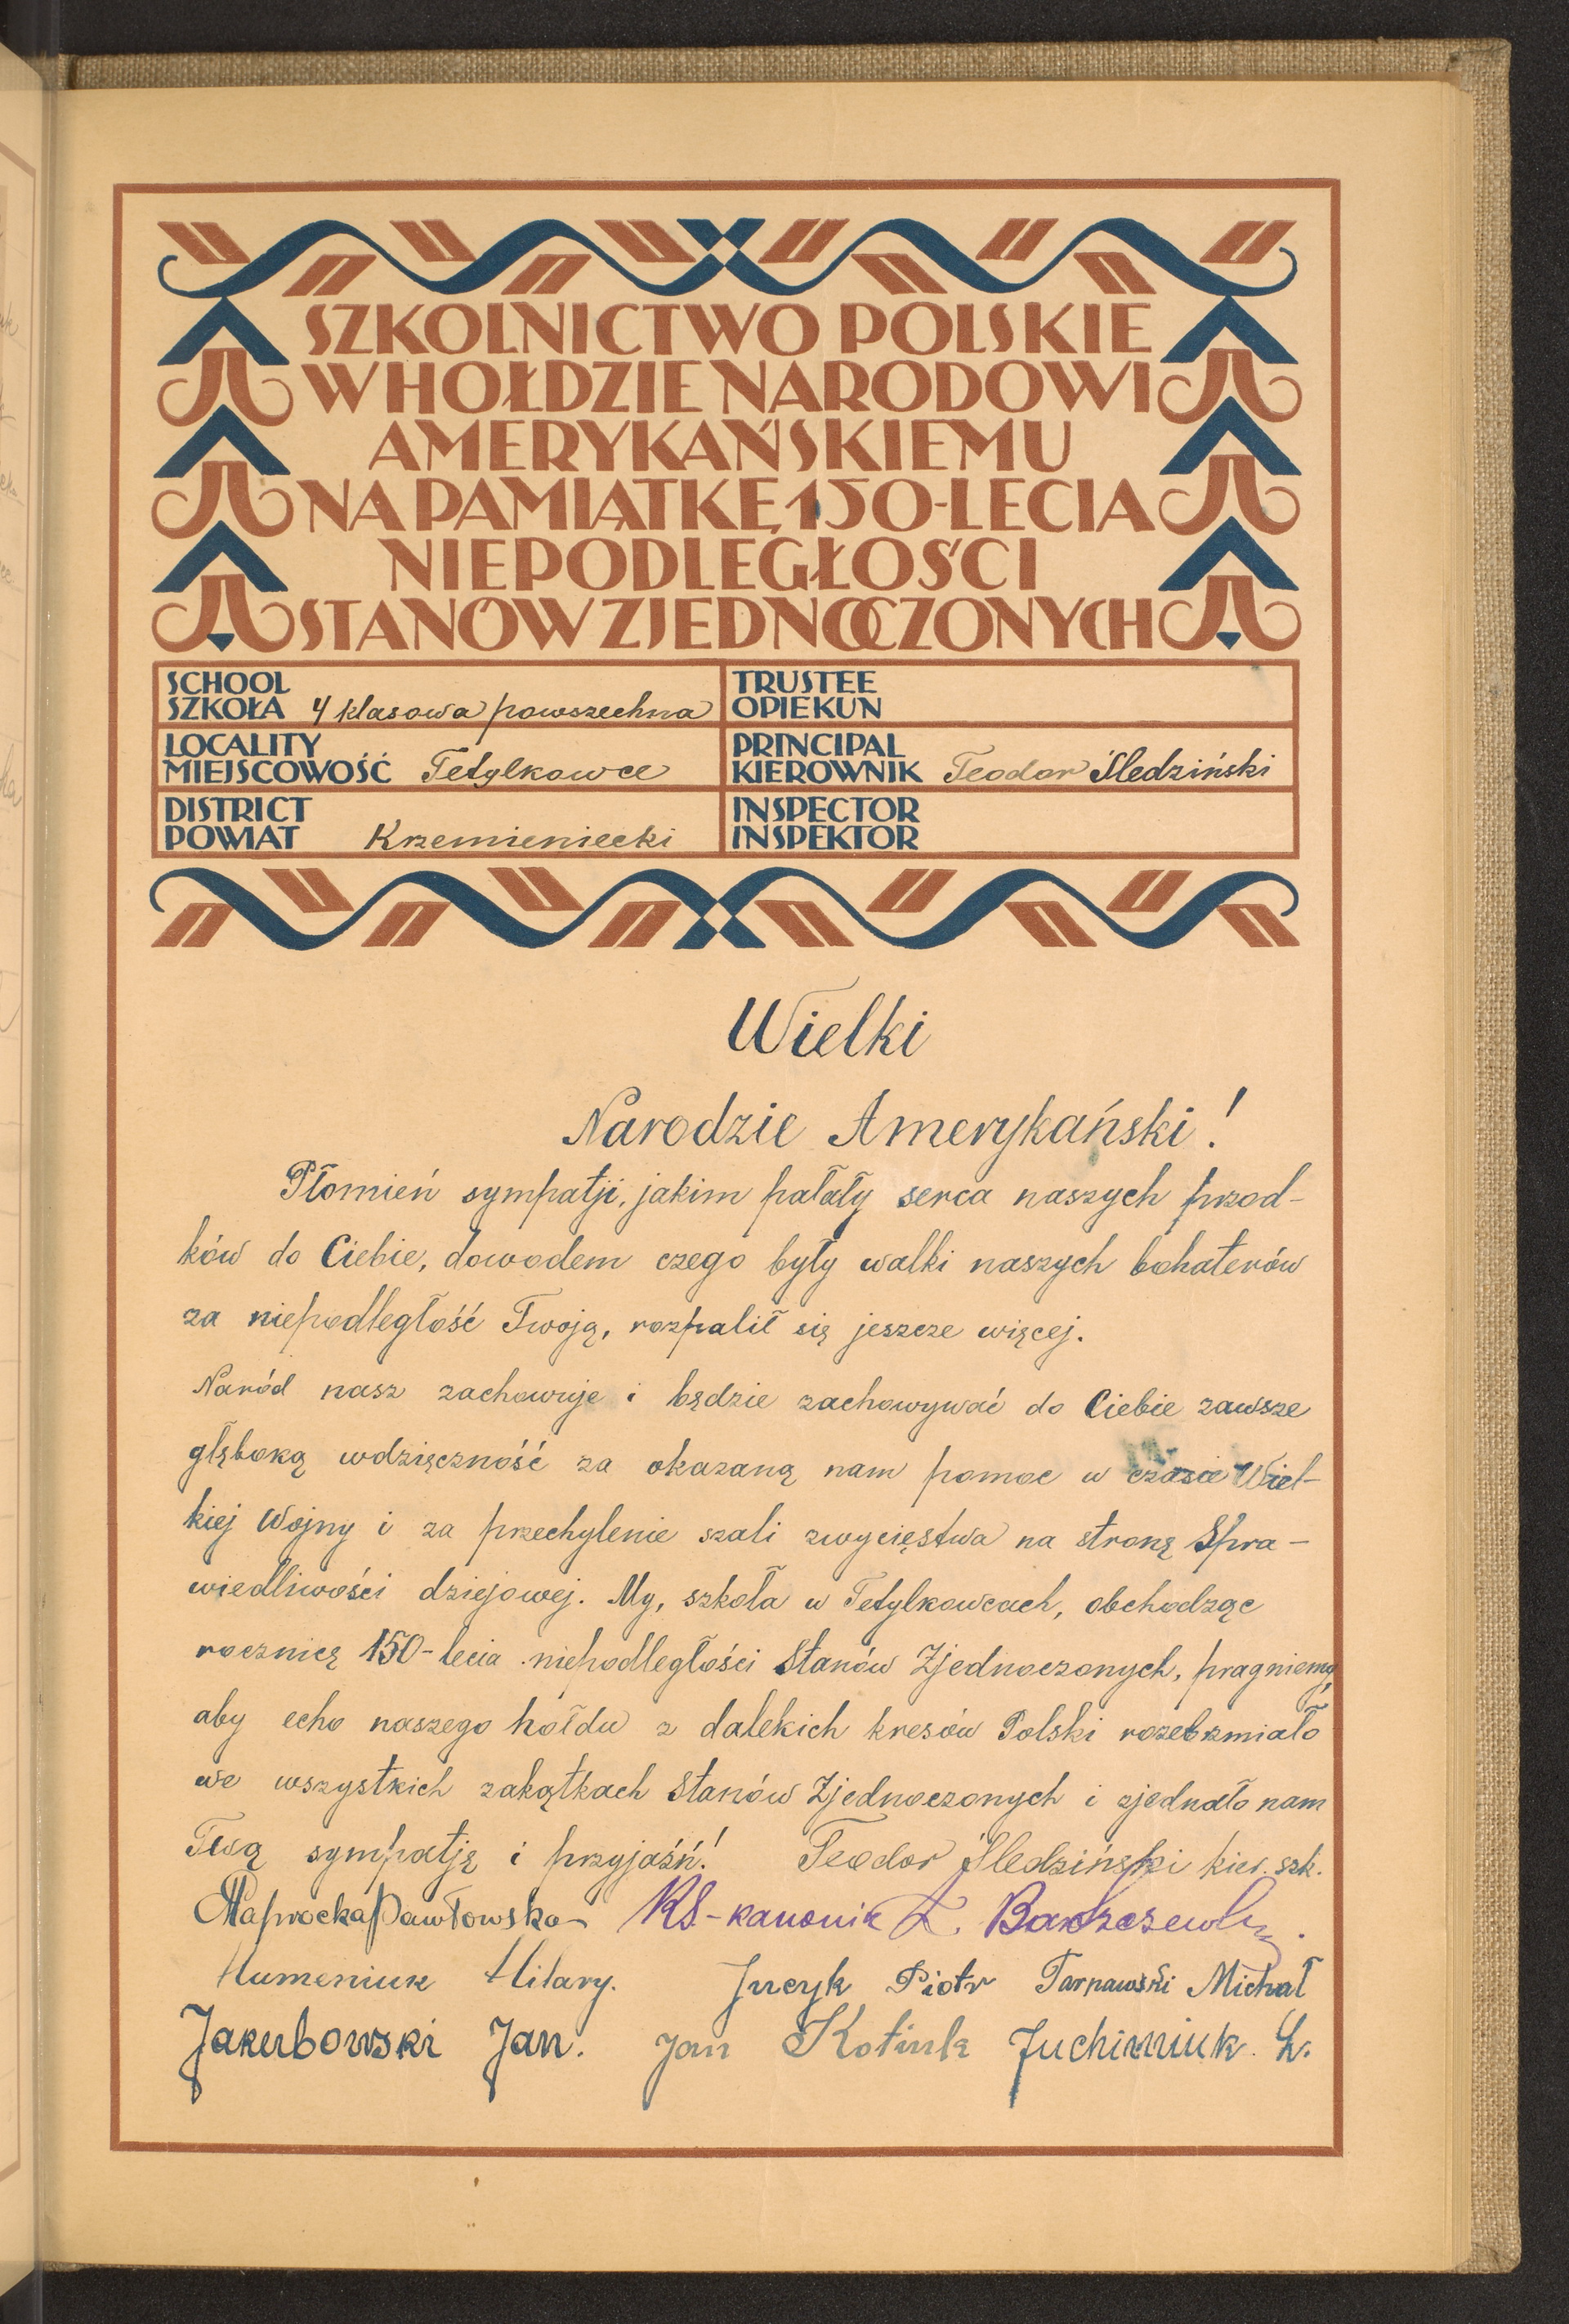 SZKOLNICTWO POLSKIE
W HOŁDZIE NARODOWI
AMERYKAŃSKIEMU
NA PAMIĄTKĘ 150-LECIA
NIEPODLEGŁOŚCI
STANÓW ZJEDNOCZONYCH
SCHOOL
SZKOŁA 4 klasowa powszechna
TRUSTEE
OPIEKUN
LOCALITY
MIEJSCOWOŚĆ Tetylkowce
PRINCIPAL
KIEROWNIK Teodor Śledziński
DISTRICT
POWIAT Krzemieniecki
INSPECTOR
INSPEKTOR
Wielki
Narodzie Amerykański!
Płomień sympatji, jakim pałały serca naszych przod-
ków do Ciebie, dowodem czego były walki naszych bohaterów
za niepodległość Twoją, rozpalił się jeszcze więcej.
Naród nasz zachowuje i będzie zachowywać do Ciebie zawsze
głęboką wdzięczność za okazaną nam pomoc w czasie Wiel-
kiej Wojny i za przechylenie szali zwycięstwa na stronę Spra-
wiedliwości dziejowej. My, szkoła w Tetylkowcach, obchodząc
rocznicę 150-lecia niepodległości Stanów Zjednoczonych, pragniemy,
aby echo naszego hołdu z dalekich kresów Polski rozebrzmiało
we wszystkich zakątkach Stanów Zjednoczonych i zjednało nam
Twą sympatję i przyjaźń! Teodor Śledziński kier. szk.
Paprocka Pawłowska KS-kanonik Z.
Humeniuk Hilary. Jurcyk Piotr Tarnawski Michał
Jakubowski Jan. Jan Juchimiuk. L.